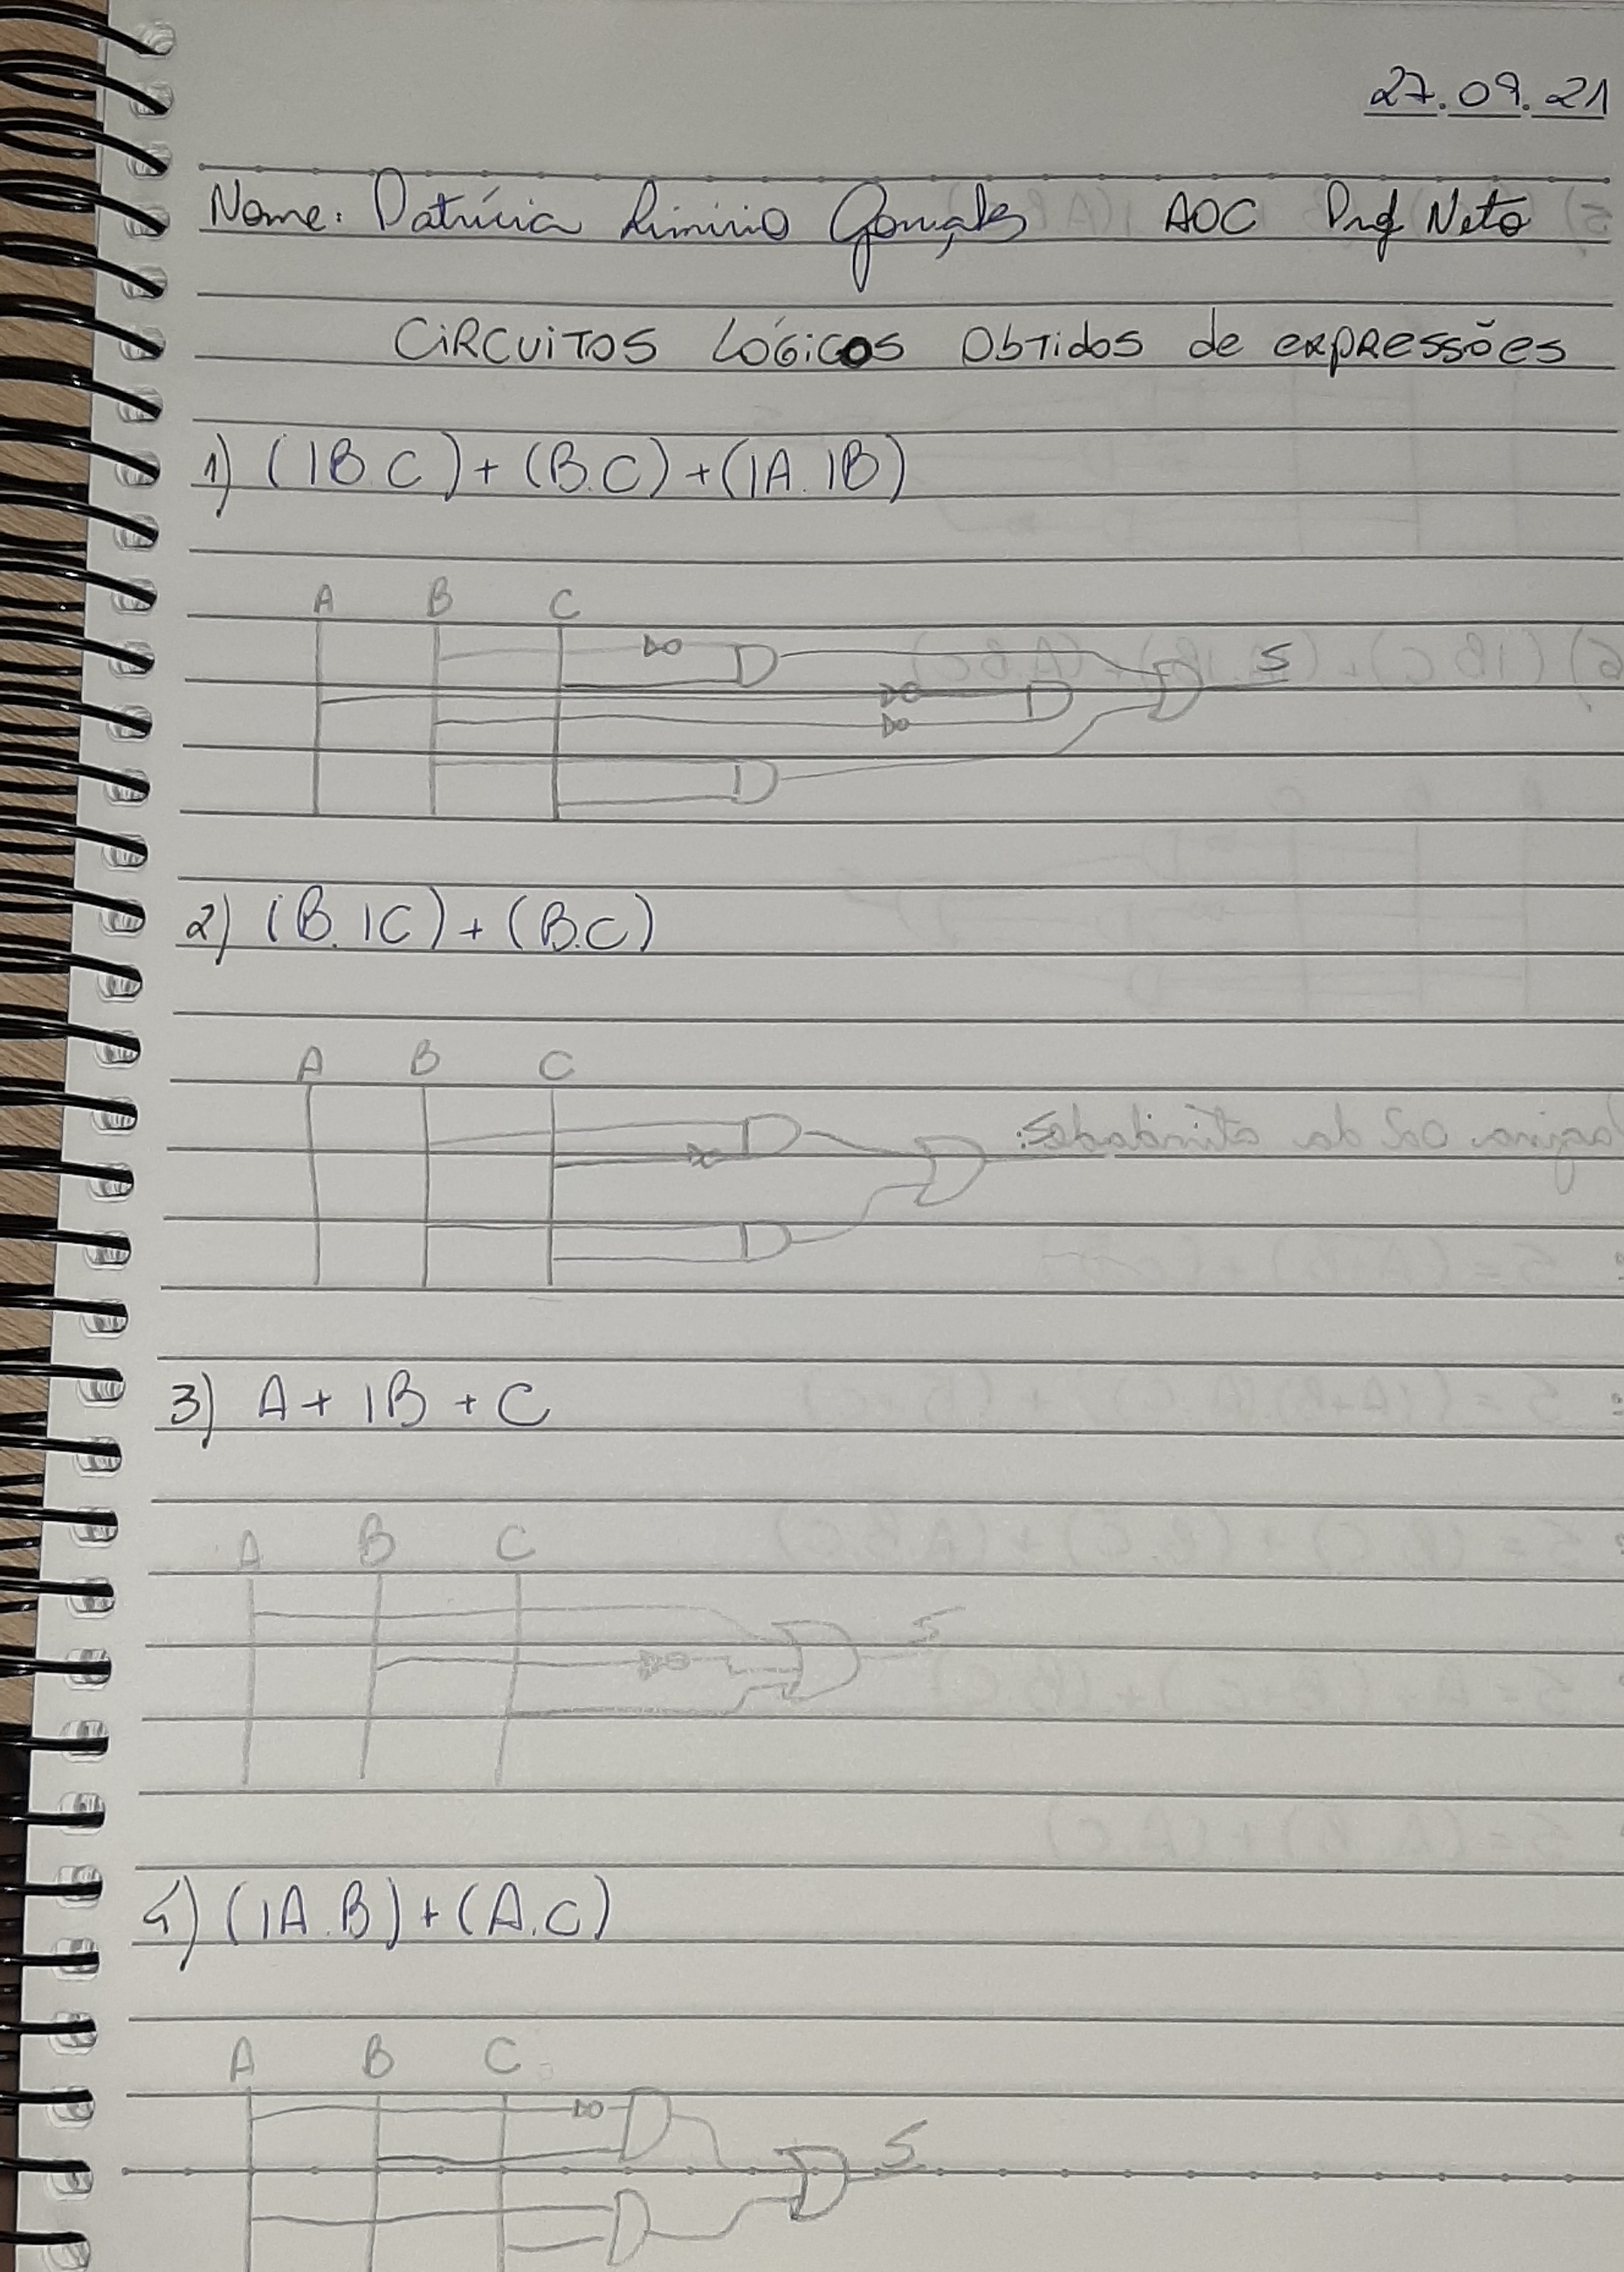 27.09.21
Nome: Patrícia Gonçales AOC Prof Neto
CIRCUITOS LÓGICOS Obtidos de expressões
1) (|B.C) + (B.C) + (|A.|B)
A B C
S
2) (B.|C) + (B.C)
A B C
3) A + |B + C
A B C
S
4) (|A.B) + (A.C)
A B C
S